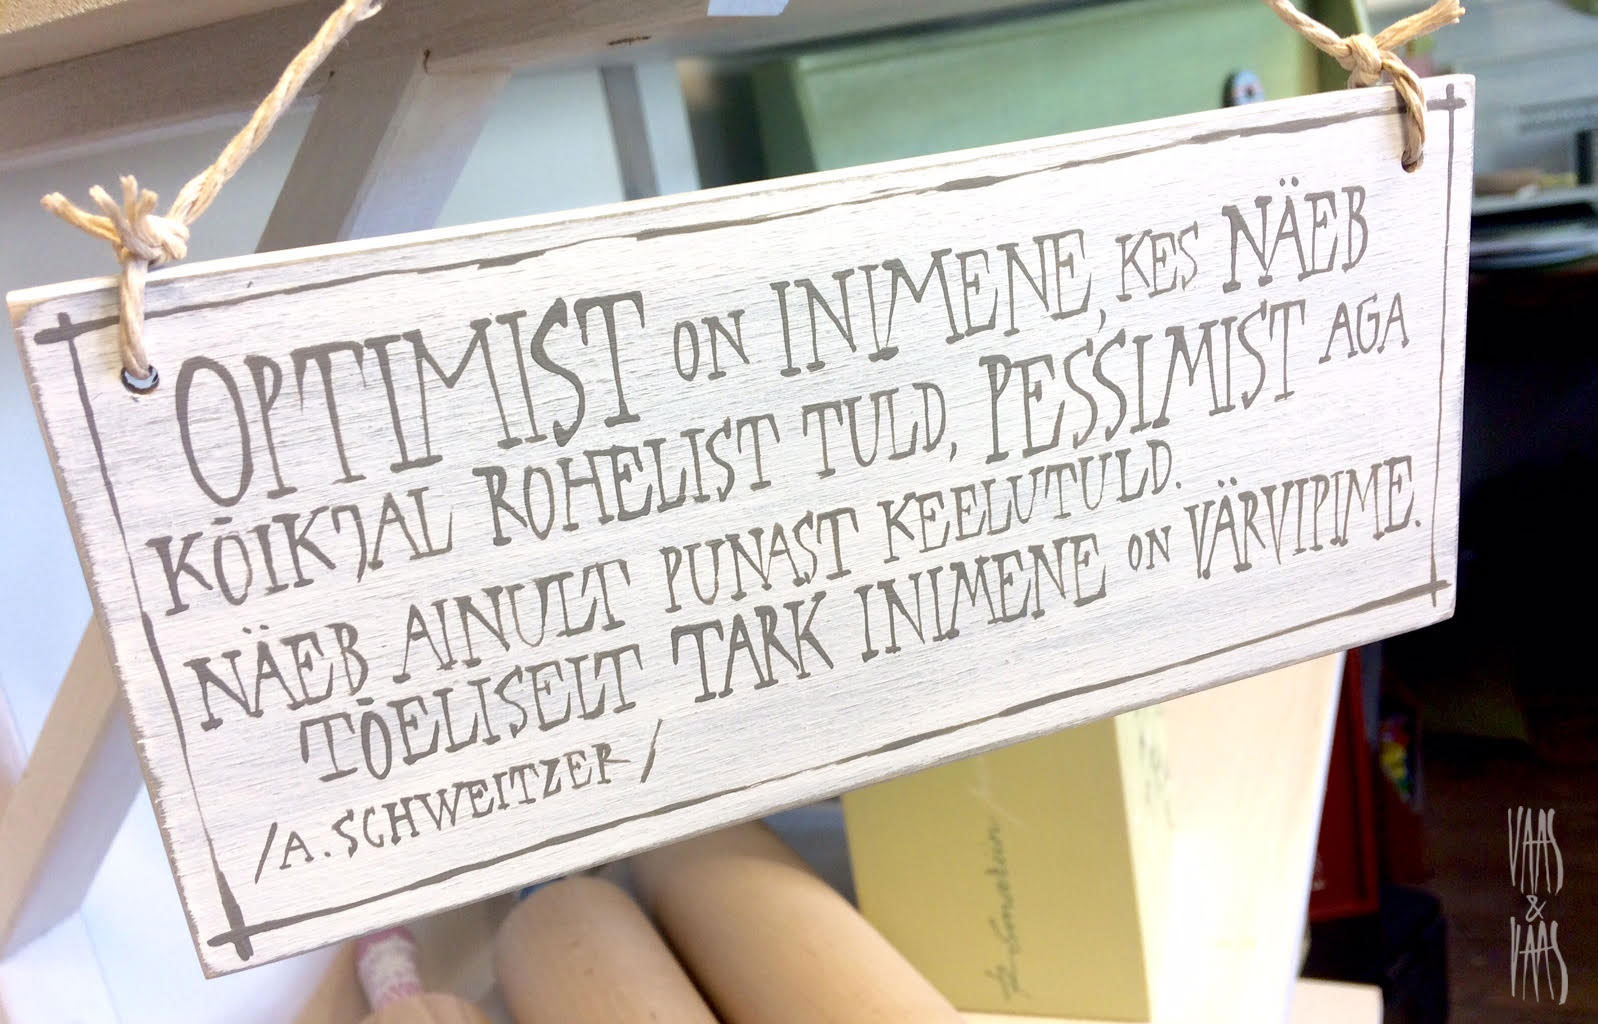 OPTIMIST ON INIMENE, KES NÄEB
KÕIKJAL ROHELIST TULD, PESSIMIST AGA
NÄEB AINULT PUNAST KEELUTULD.
TÕELISELT TARK INIMENE ON VÄRVIPIME.
/A. SCHWEITZER/
VAAS
&
VAAS